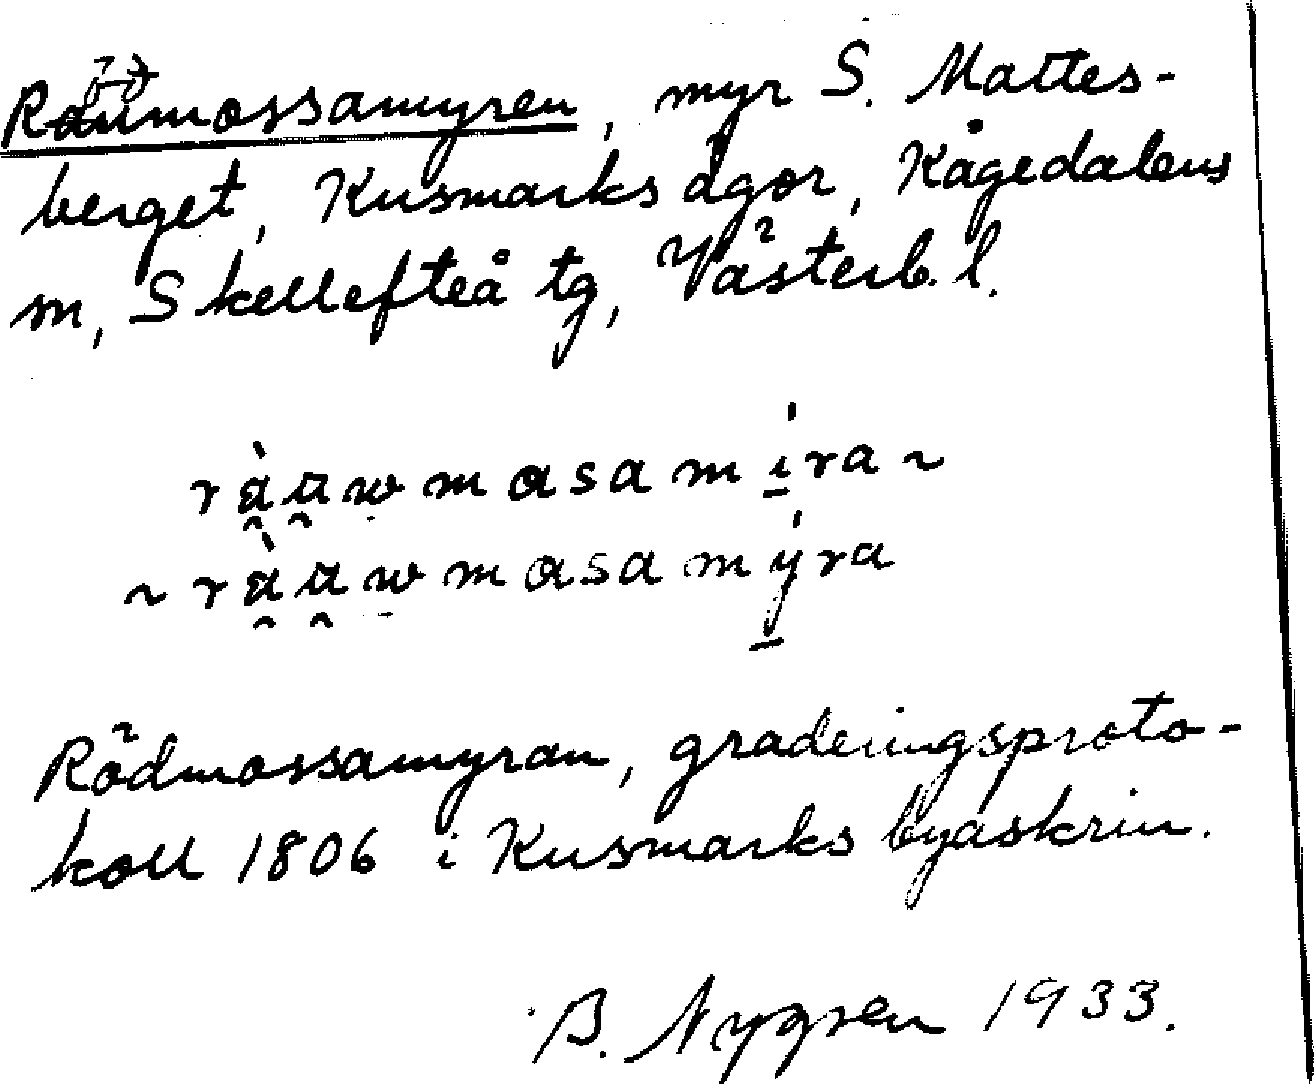 Rödmossamyren, myr S. Mattes-
berget, Kusmarks ägor, Kågedalens
m, Skellefteå tg, Västerb. l.
mosasa
Rödmossamyran, graderingsproto-
koll 1806 i Kusmarks byaskrin.
B. Nygren 1933.